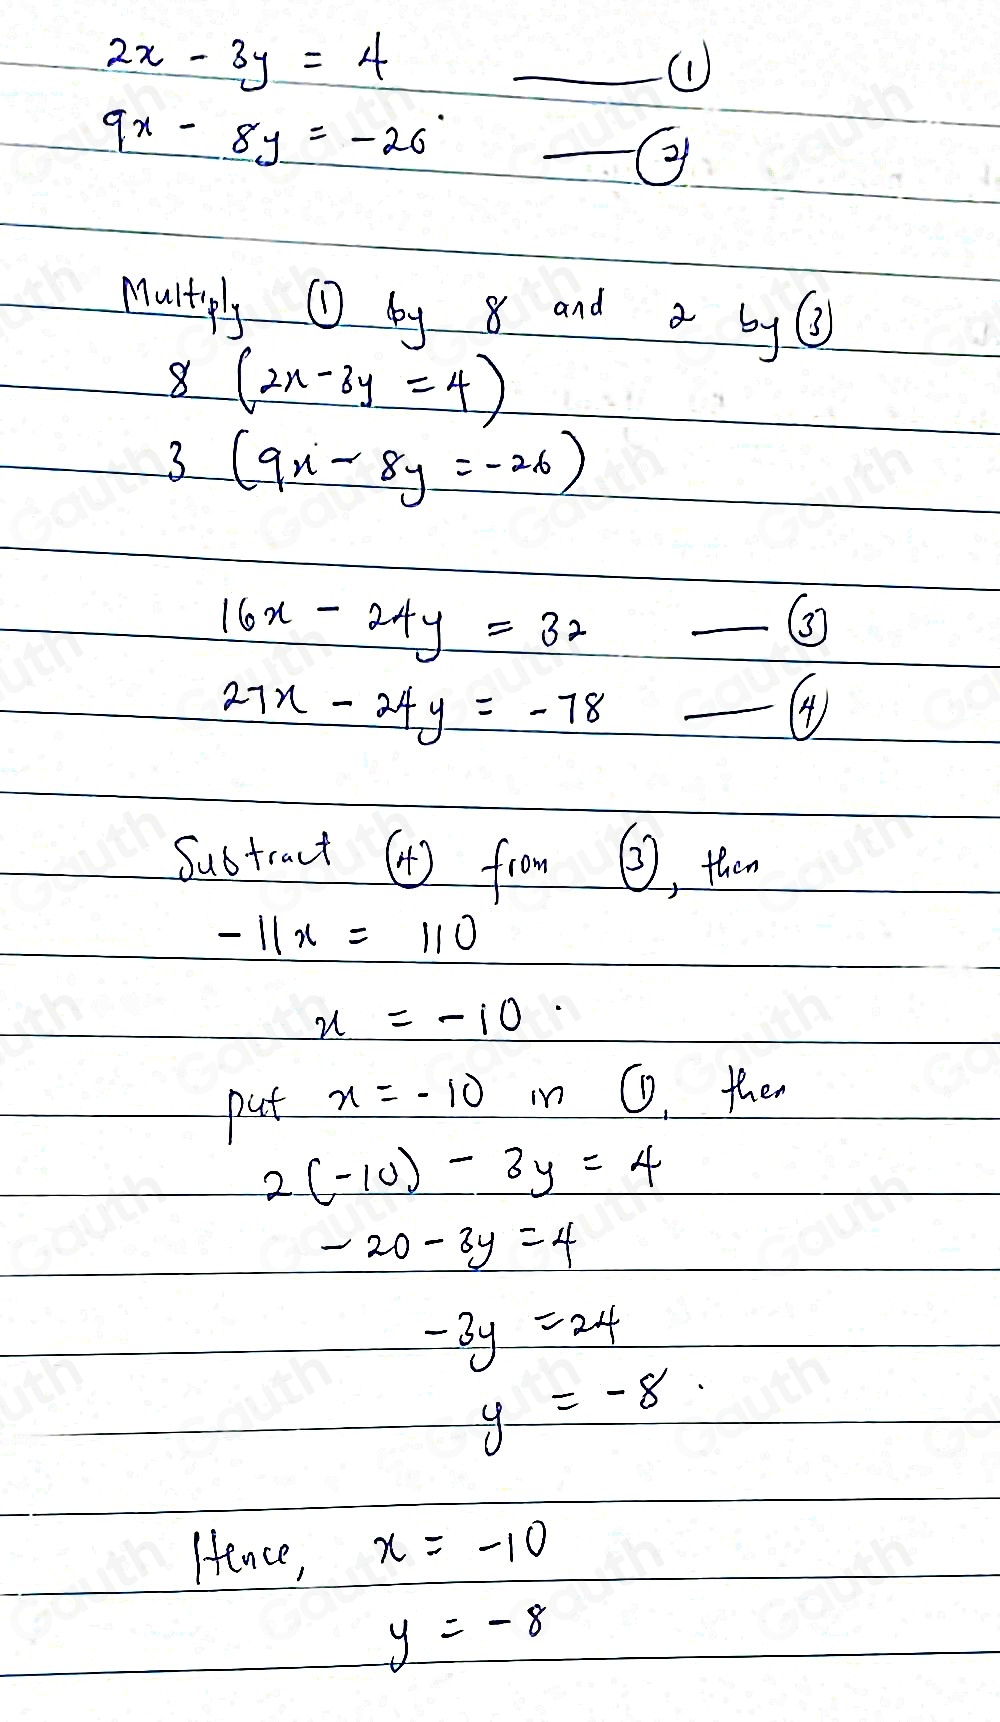 2x - 3y = 4 —— ①
9x - 8y = -26 —— ②
Multiply ① by 8 and 2 by ③
8 (2x - 3y = 4)
3 (9x - 8y = -26)
16x - 24y = 32 —— ③
27x - 24y = -78 —— ④
Subtract ④ from ③, then
-11x = 110
x = -10.
put x = -10 in ①, then
2(-10) - 3y = 4
-20 - 3y = 4
-3y = 24
y = -8.
Hence, x = -10
y = -8